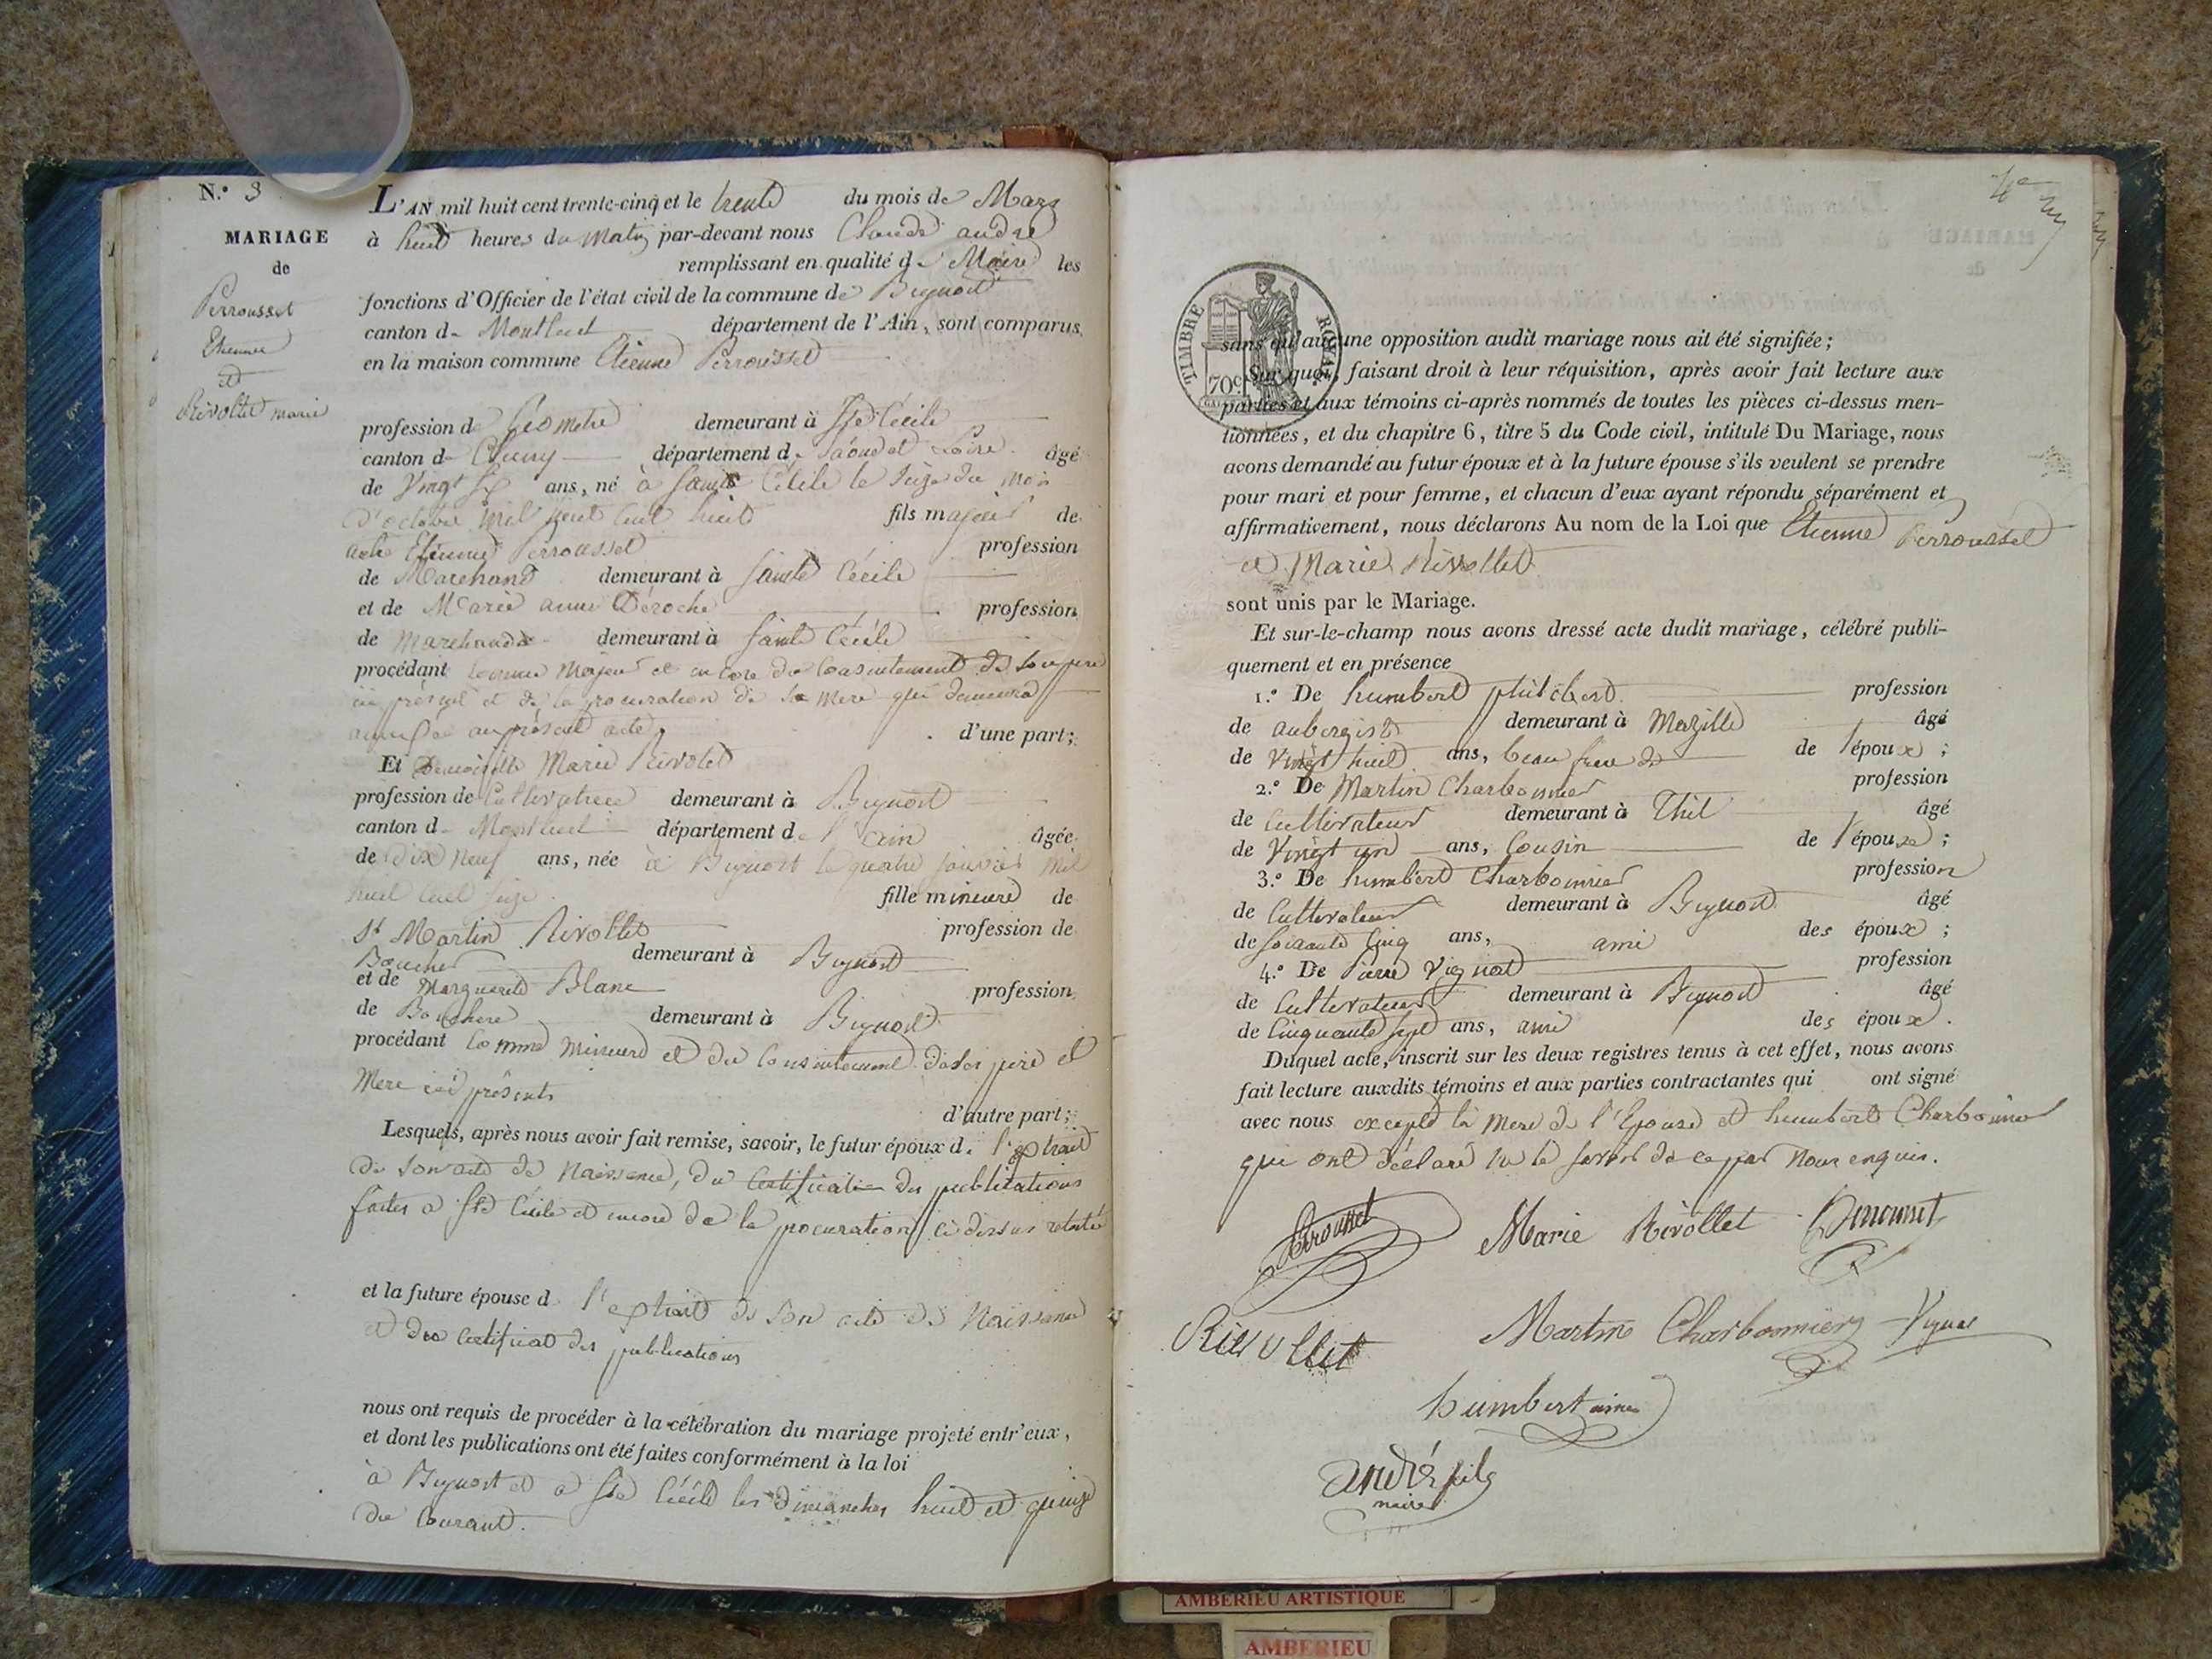 N.º 3
MARIAGE
de
Perrousset
Etienne
et
Rivollet marie
L'AN mil huit cent trente-cinq et le trente du mois de Mars
à huit heures du Matin par-devant nous Claude andre
remplissant en qualité de Maire les
fonctions d'Officier de l'état civil de la commune de Beynost
canton de Montluel département de l'Ain, sont comparus
en la maison commune Etienne Perrousset
profession de Géometre demeurant à Ste Cécile
canton de Cluny département de Saône et Loire âgé
de Vingt Six ans, né à Sainte Cécile le Seize du mois
d'octobre mil huit cent huit fils majeur de
Etienne Perrousset profession
de Marchand demeurant à Sainte Cécile
et de Marie anne Déroche profession
de Marchande demeurant à Sainte Cécile
procédant comme Majeur et encore du Consentement de son pere
ici présent et de la procuration de sa mere qui demeura
annexée au présent acte d'une part;
Et Demoiselle Marie Rivolet
profession de Cultivatrice demeurant à Beynost
canton de Montluel département de l'ain âgée
de dix neuf ans, née à Beynost le quatre janvier mil
huit cent seize fille mineure de
St Martin Rivollet profession de
Boucher demeurant à Beynost
et de Marguerite Blanc profession
de Bouchere demeurant à Beynost
procédant Comme mineure et du Consentement de ses pere et
Mere ici présents
d'autre part;
Lesquels, après nous avoir fait remise, savoir, le futur époux de l'extrait
de son acte de Naissance, du Certificat des publications
faites a Ste Cécile et encore de la procuration ci dessus relatée
et la future épouse de l'extrait de son acte de Naissance
et du Certificat des publications
nous ont requis de procéder à la célébration du mariage projeté entr'eux,
et dont les publications ont été faites conformément à la loi
à Beynost et a Ste Cécile les dimanches huit et quinze
du Courant.
TIMBRE ROYAL
70c
sans qu'aucune opposition audit mariage nous ait été signifiée;
Sur quoi, faisant droit à leur réquisition, après avoir fait lecture aux
parties et aux témoins ci-après nommés de toutes les pièces ci-dessus men-
tionnées, et du chapitre 6, titre 5 du Code civil, intitulé Du Mariage, nous
avons demandé au futur époux et à la future épouse s'ils veulent se prendre
pour mari et pour femme, et chacun d'eux ayant répondu séparément et
affirmativement, nous déclarons Au nom de la Loi que Etienne Perrousset
et Marie Rivollet
sont unis par le Mariage.
Et sur-le-champ nous avons dressé acte dudit mariage, célébré publi-
quement et en présence
1.º De humbert philibert profession
de aubergiste demeurant à Mazille âgé
de Vingt huit ans, beau frere de de l'époux;
2.º De Martin Charbonnier profession
de Cultivateur demeurant à Thil âgé
de Vingt un ans, Cousin de l'épouse;
3.º De humbert Charbonnier profession
de Cultivateur demeurant à Beynost âgé
de soixante Cinq ans, ami des époux;
4.º De Pierre Vignat profession
de Cultivateur demeurant à Beynost âgé
de Cinquante sept ans, ami des époux.
Duquel acte, inscrit sur les deux registres tenus à cet effet, nous avons
fait lecture auxdits témoins et aux parties contractantes qui ont signé
avec nous excepté la mere de l'Epouse et humbert Charbonnier
qui ont déclaré ne le savoir de ce par Nous enquis.
Perousset Marie Rivollet
Martin Charbonnier
humbert
André fils
maire
AMBERIEU ARTISTIQUE
AMBERIEU